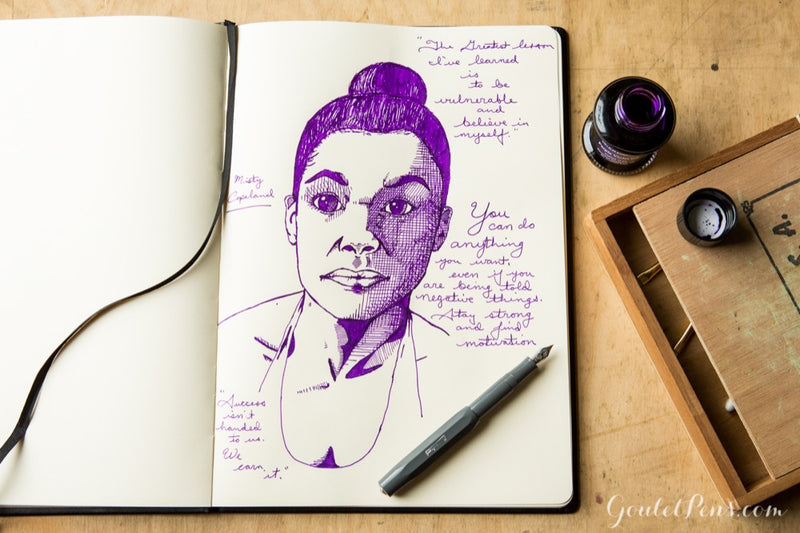 "The Greatest lesson
I've learned
is
to be
vulnerable
and
believe in
myself."
Misty
Copeland
You
can do
anything
you want,
even if you
are being told
negative things.
Stay strong
and find
motivation
"Success
isn't
handed
to us.
We
earn
it."
GouletPens.com